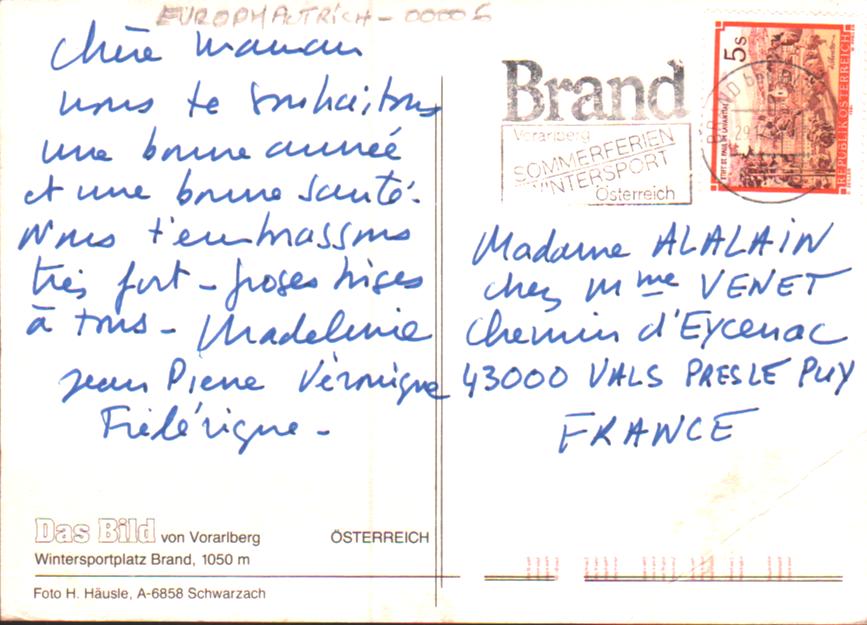 EUROPHAUTRICH - 00005
Chère Maman
nous te souhaitons
une bonne année
et une bonne santé.
Nous t'embrassons
très fort - grosses bises
à tous - Madeleine
Jean Pierre Véronique
Frédérique -
Brand
Vorarlberg
SOMMERFERIEN
WINTERSPORT
Österreich
5s
STIFT ST. PAUL IM LAVANTTAL
REPUBLIK ÖSTERREICH
Madame ALALAIN
chez Mme VENET
Chemin d'Eycenac
43000 VALS PRES LE PUY
FRANCE
Das Bild von Vorarlberg ÖSTERREICH
Wintersportplatz Brand, 1050 m
Foto H. Häusle, A-6858 Schwarzach